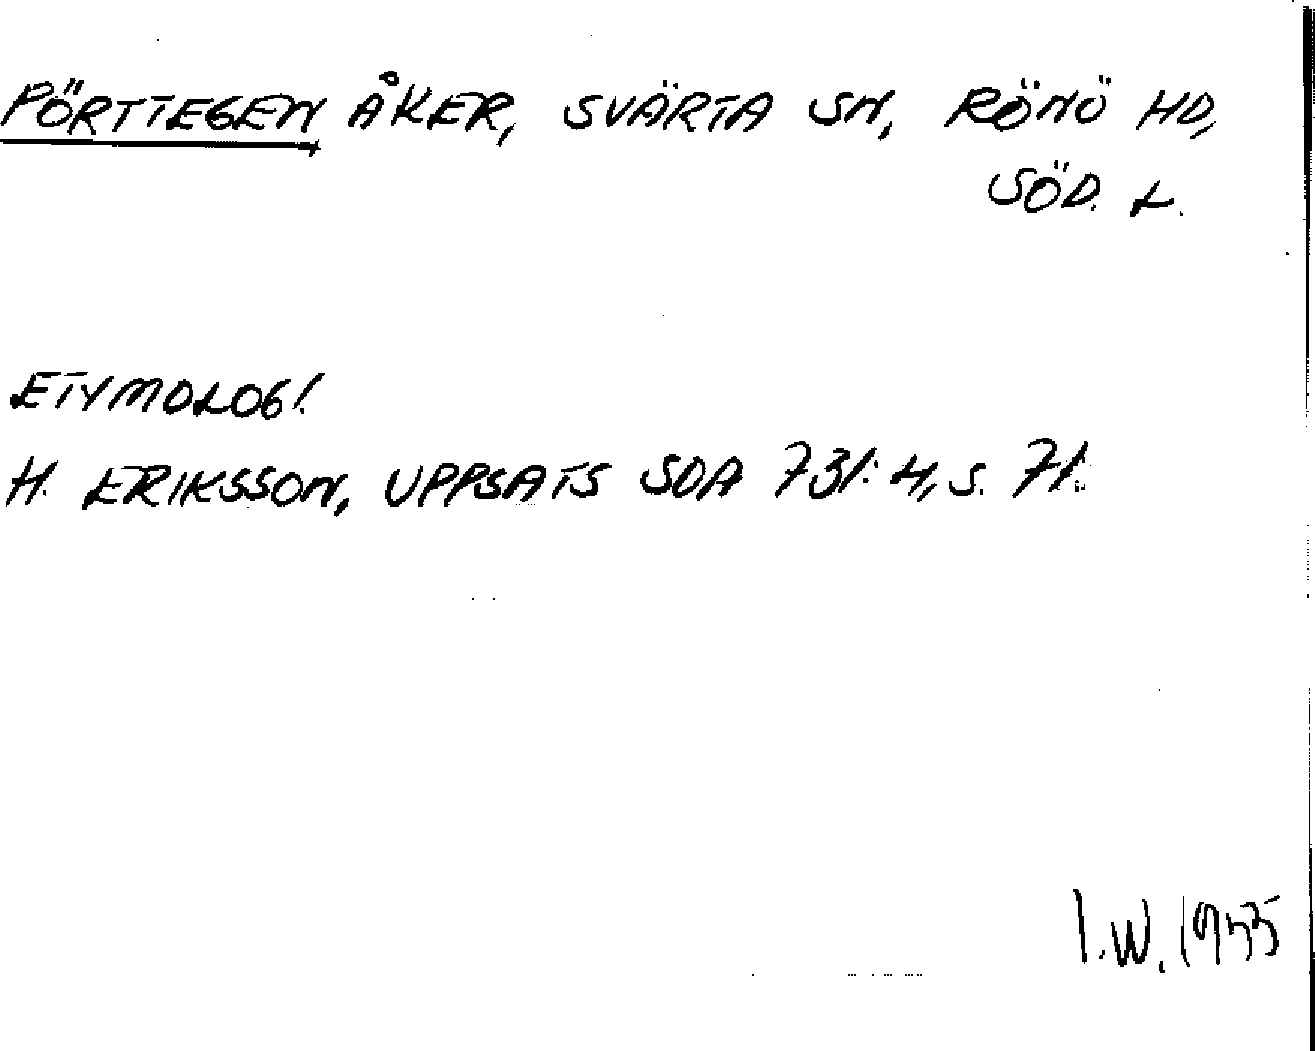 PÖRTTEGEN ÅKER, SVÄRTA SN, RÖNÖ HD,
SÖD. L.
ETYMOLOGI.
H. ERIKSSON, UPPSATS SOA 731:4, S. 71.
I.W. 1955